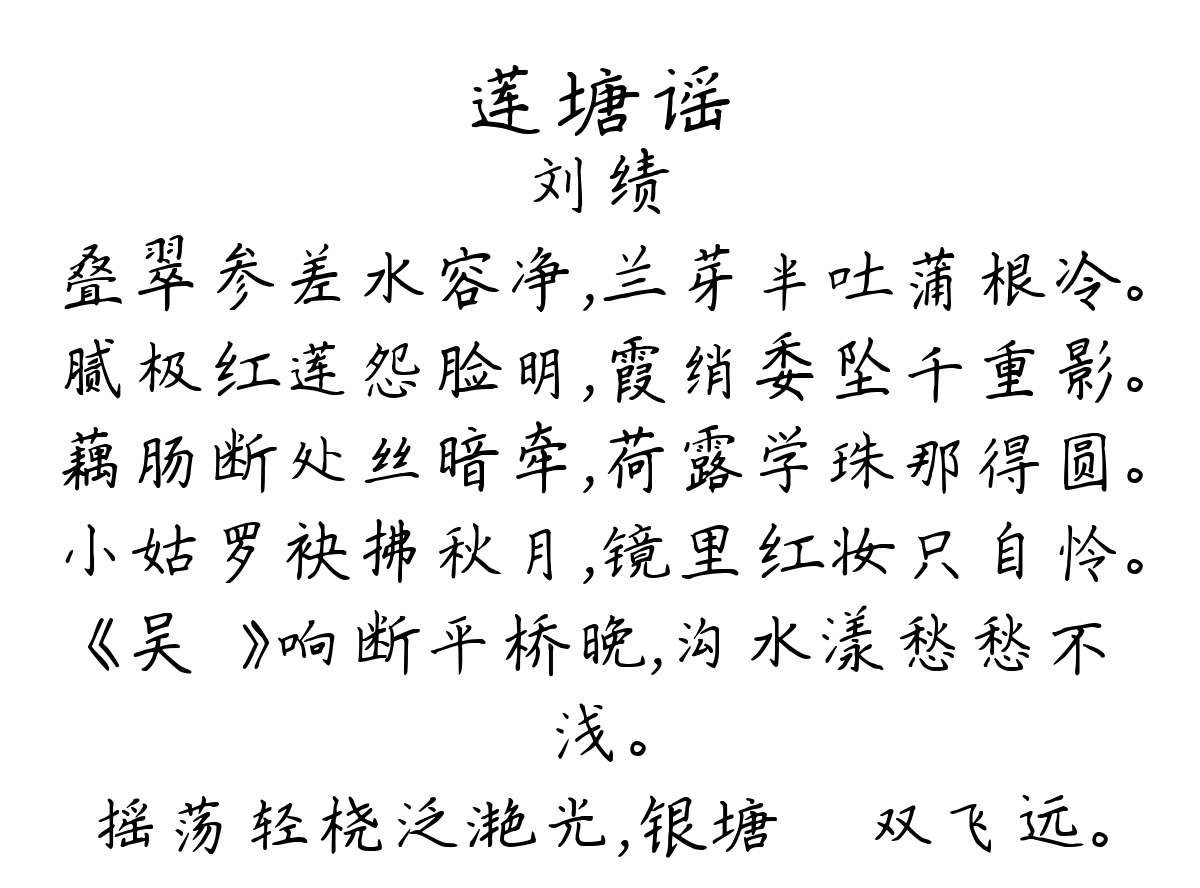 莲塘谣
刘绩
叠翠参差水容净,兰芽半吐蒲根冷。
腻极红莲怨脸明,霞绡委坠千重影。
藕肠断处丝暗牵,荷露学珠那得圆。
小姑罗袂拂秋月,镜里红妆只自怜。
《吴 》响断平桥晚,沟水漾愁愁不
浅。
摇荡轻桡泛滟光,银塘 双飞远。